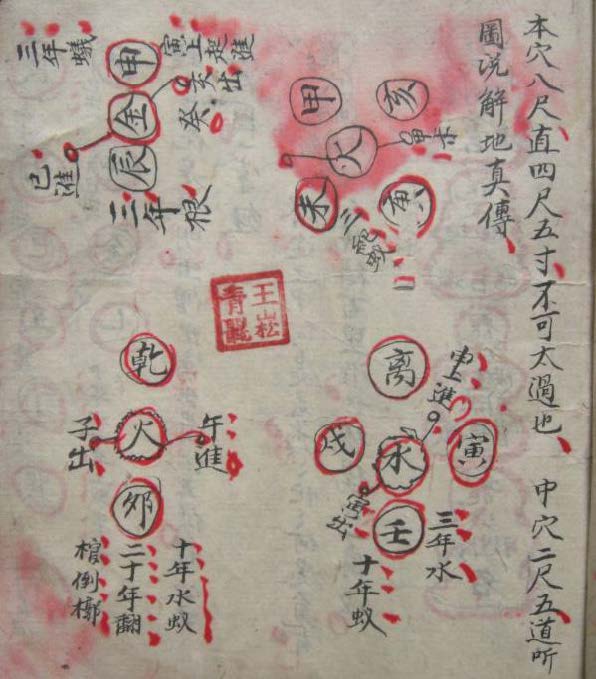 本穴八尺直四尺五寸不可太過也　中穴二尺五道听
圖説解地真傳
亥
火
甲
未
寅上起進
亥出
癸
申
金
辰
三年蟻
巳進
三年根
王崧
青龍
离
申上進
寅
水
戌
寅出
壬
三年水
十年蚁
乾
午進
火
子出
卯
十年水蚁
二十年翻
棺倒槨